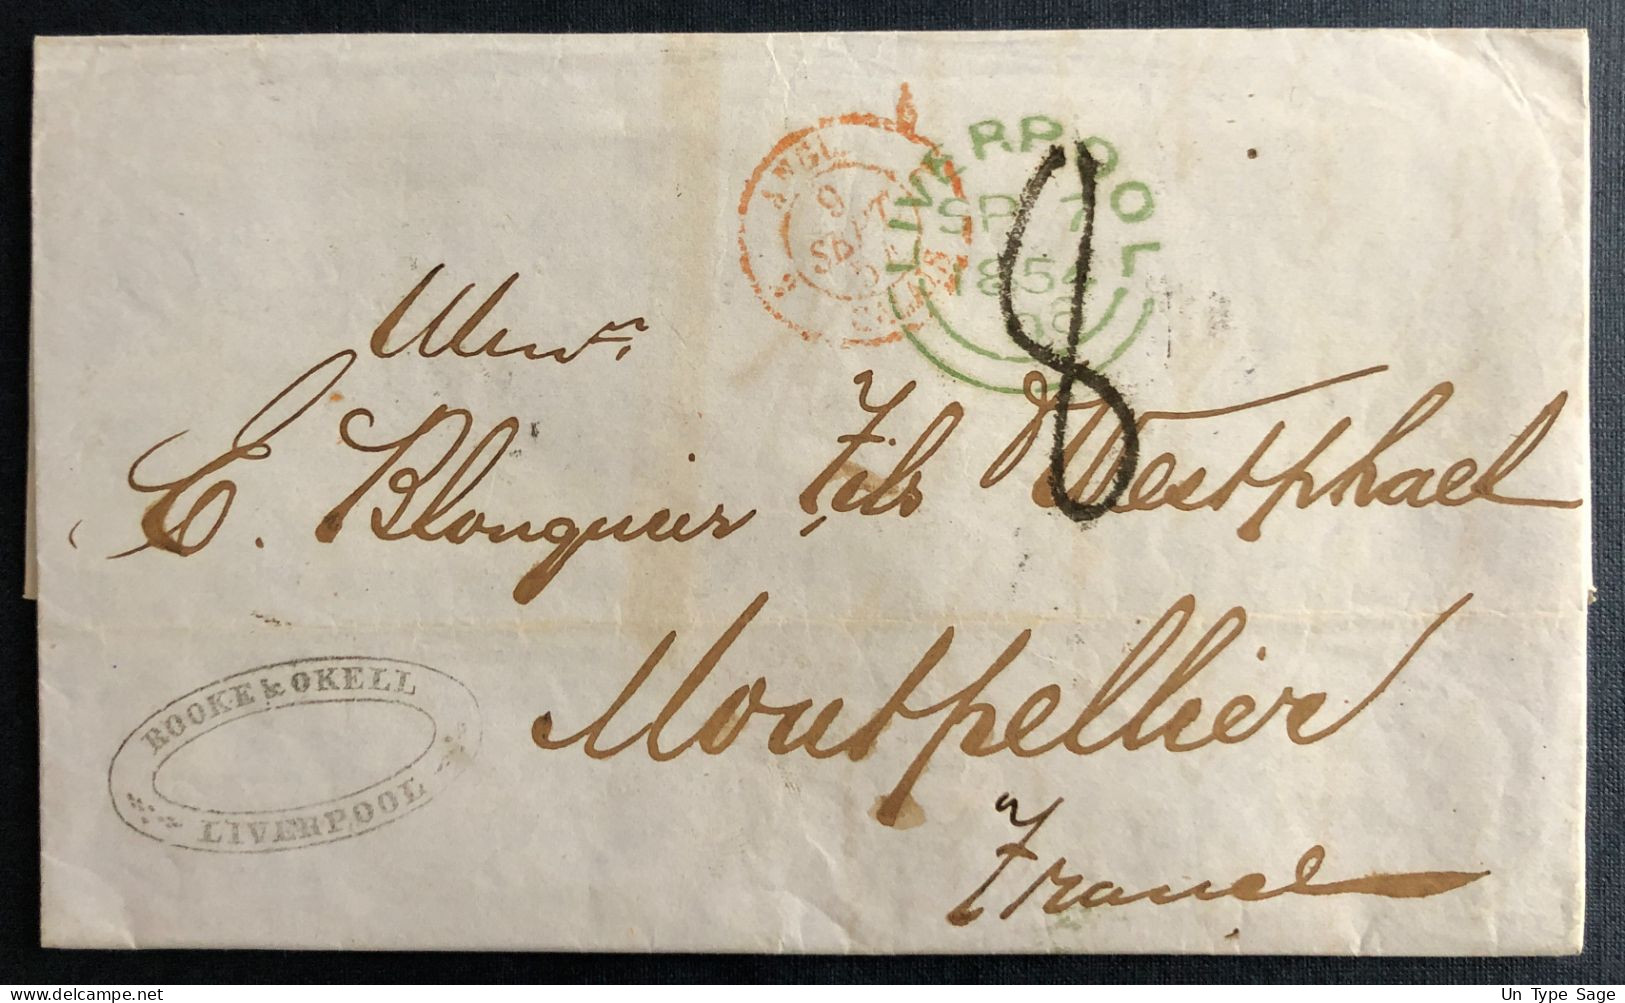 ANGL.
9
SEPT
CALAIS
LIVERPOOL
SP 7
1854
8
Mess.rs
E. Blouquier Fils & Westphael
Montpellier
France
ROOKE & OKELL
LIVERPOOL
delcampe.net
Un Type Sage